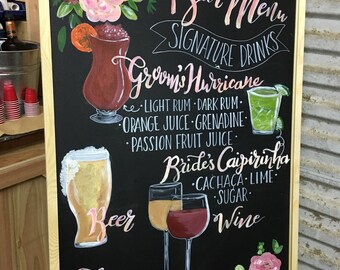 Bar Menu
SIGNATURE DRINKS
Groom's Hurricane
LIGHT RUM · DARK RUM ·
ORANGE JUICE · GRENADINE ·
PASSION FRUIT JUICE ·
Bride's Caipirinha
CACHAÇA · LIME ·
SUGAR ·
Beer
Wine